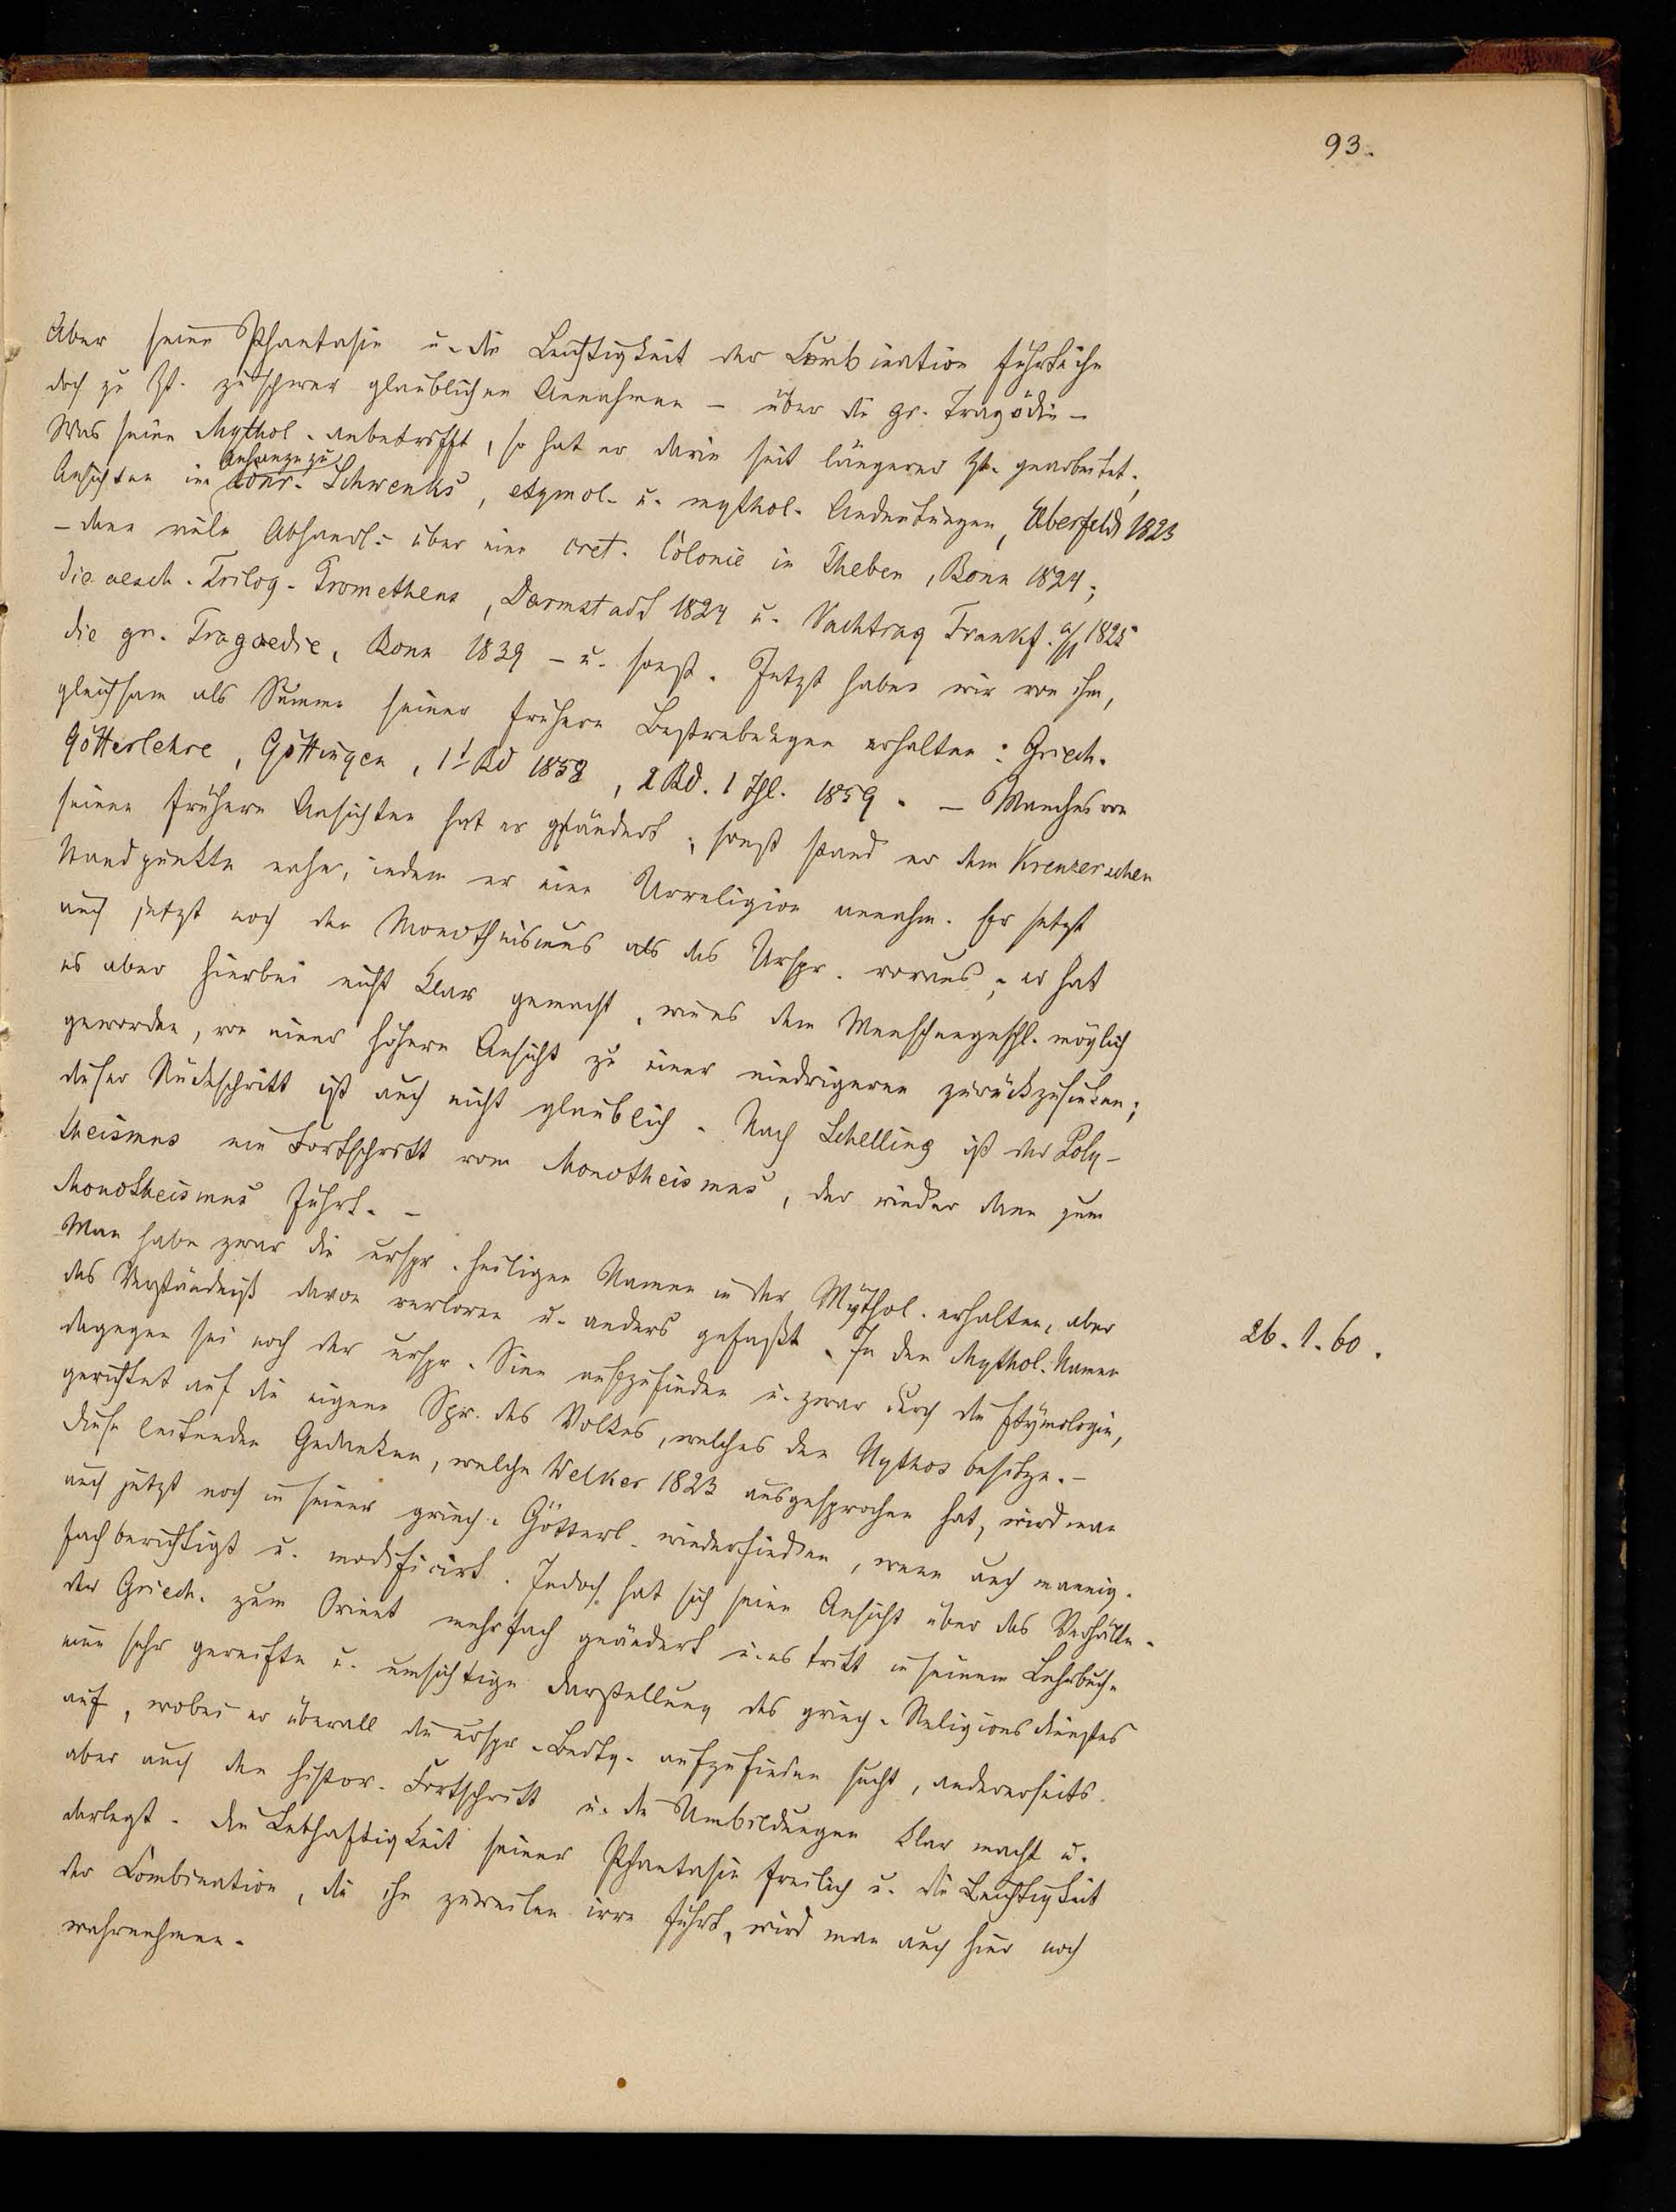 93.
Aber seine Phantasie u. die Leichtigkeit der Combination führte ihn
doch zu Zt. zu schwer glaublichen Annahmen – über die gr. Tragödie –
Was seine Mythol. anbetrifft, so hat er darin seit längerer Zt. gearbeitet;
Anhange zu
Ansichten im Conr. Schwenks, etymol. u. mythol. Andeutungen, Elberfeld 1823
– dann viele Abhandl. über eine cret. Colonie in Theben, Bonn 1824;
die aesch. Trilog. Prometheus, Darmstadt 1824 u. Nachtrag Frankf. a/M 1825
die gr. Tragoedie, Bonn 1839 – u. sonst. Jetzt haben wir von ihm,
gleichsam als Summe seiner frühern Bestrebungen erhalten: Griech.
Götterlehre, Göttingen, 1t Bd 1858, 2 Bd. 1 Thl. 1859. – Manches von
seinen frühern Ansichten hat er geändert; sonst stand er dem Kreuzerschen
Standpunkte nahe, indem er eine Urreligion annahm. Er setzt
auch jetzt noch den Monotheismus als das Urspr. voraus; er hat
es aber hierbei nicht klar gemacht, wie es dem Menschengeschl. möglich
geworden, von einer höhern Ansicht zu einer niedrigeren zurückzusinken;
dieser Rückschritt ist auch nicht glaublich. Nach Schelling ist der Poly-
theismus ein Fortschritt vom Monotheismus, der wieder dann zum
Monotheismus führt. –
Man habe zwar die urspr. heiligen Namen in der Mythol. erhalten, aber
das Verständniß davon verloren u. anders gefaßt. In den Mythol. Namen
26.1.60.
dagegen sei noch der urspr. Sinn aufzufinden u. zwar durch die Etymologie,
gerichtet auf die eigene Spr. des Volkes, welches den Mythos besitze. –
Diese leitenden Gedanken, welche Welker 1823 ausgesprochen hat, wird man
auch jetzt noch in seiner griech. Götterl. wiederfinden, wenn auch mannig-
fach berichtigt u. modificirt. Jedoch hat sich seine Ansicht über das Verhältn.
der Griech. zum Orient mehrfach geändert u. es tritt in seinem Lehrbuch.
eine sehr gereifte u. umsichtige Darstellung des griech. Religionsdienstes
auf, wobei er überall die urspr. Bedtg. aufzufinden sucht, andererseits
aber auch den histor. Fortschritt u. die Umbildungen klar macht u.
darlegt. Die Lebhaftigkeit seiner Phantasie freilich u. die Leichtigkeit
der Combination, die ihn zuweilen irre führt, wird man auch hier noch
wahrnehmen.